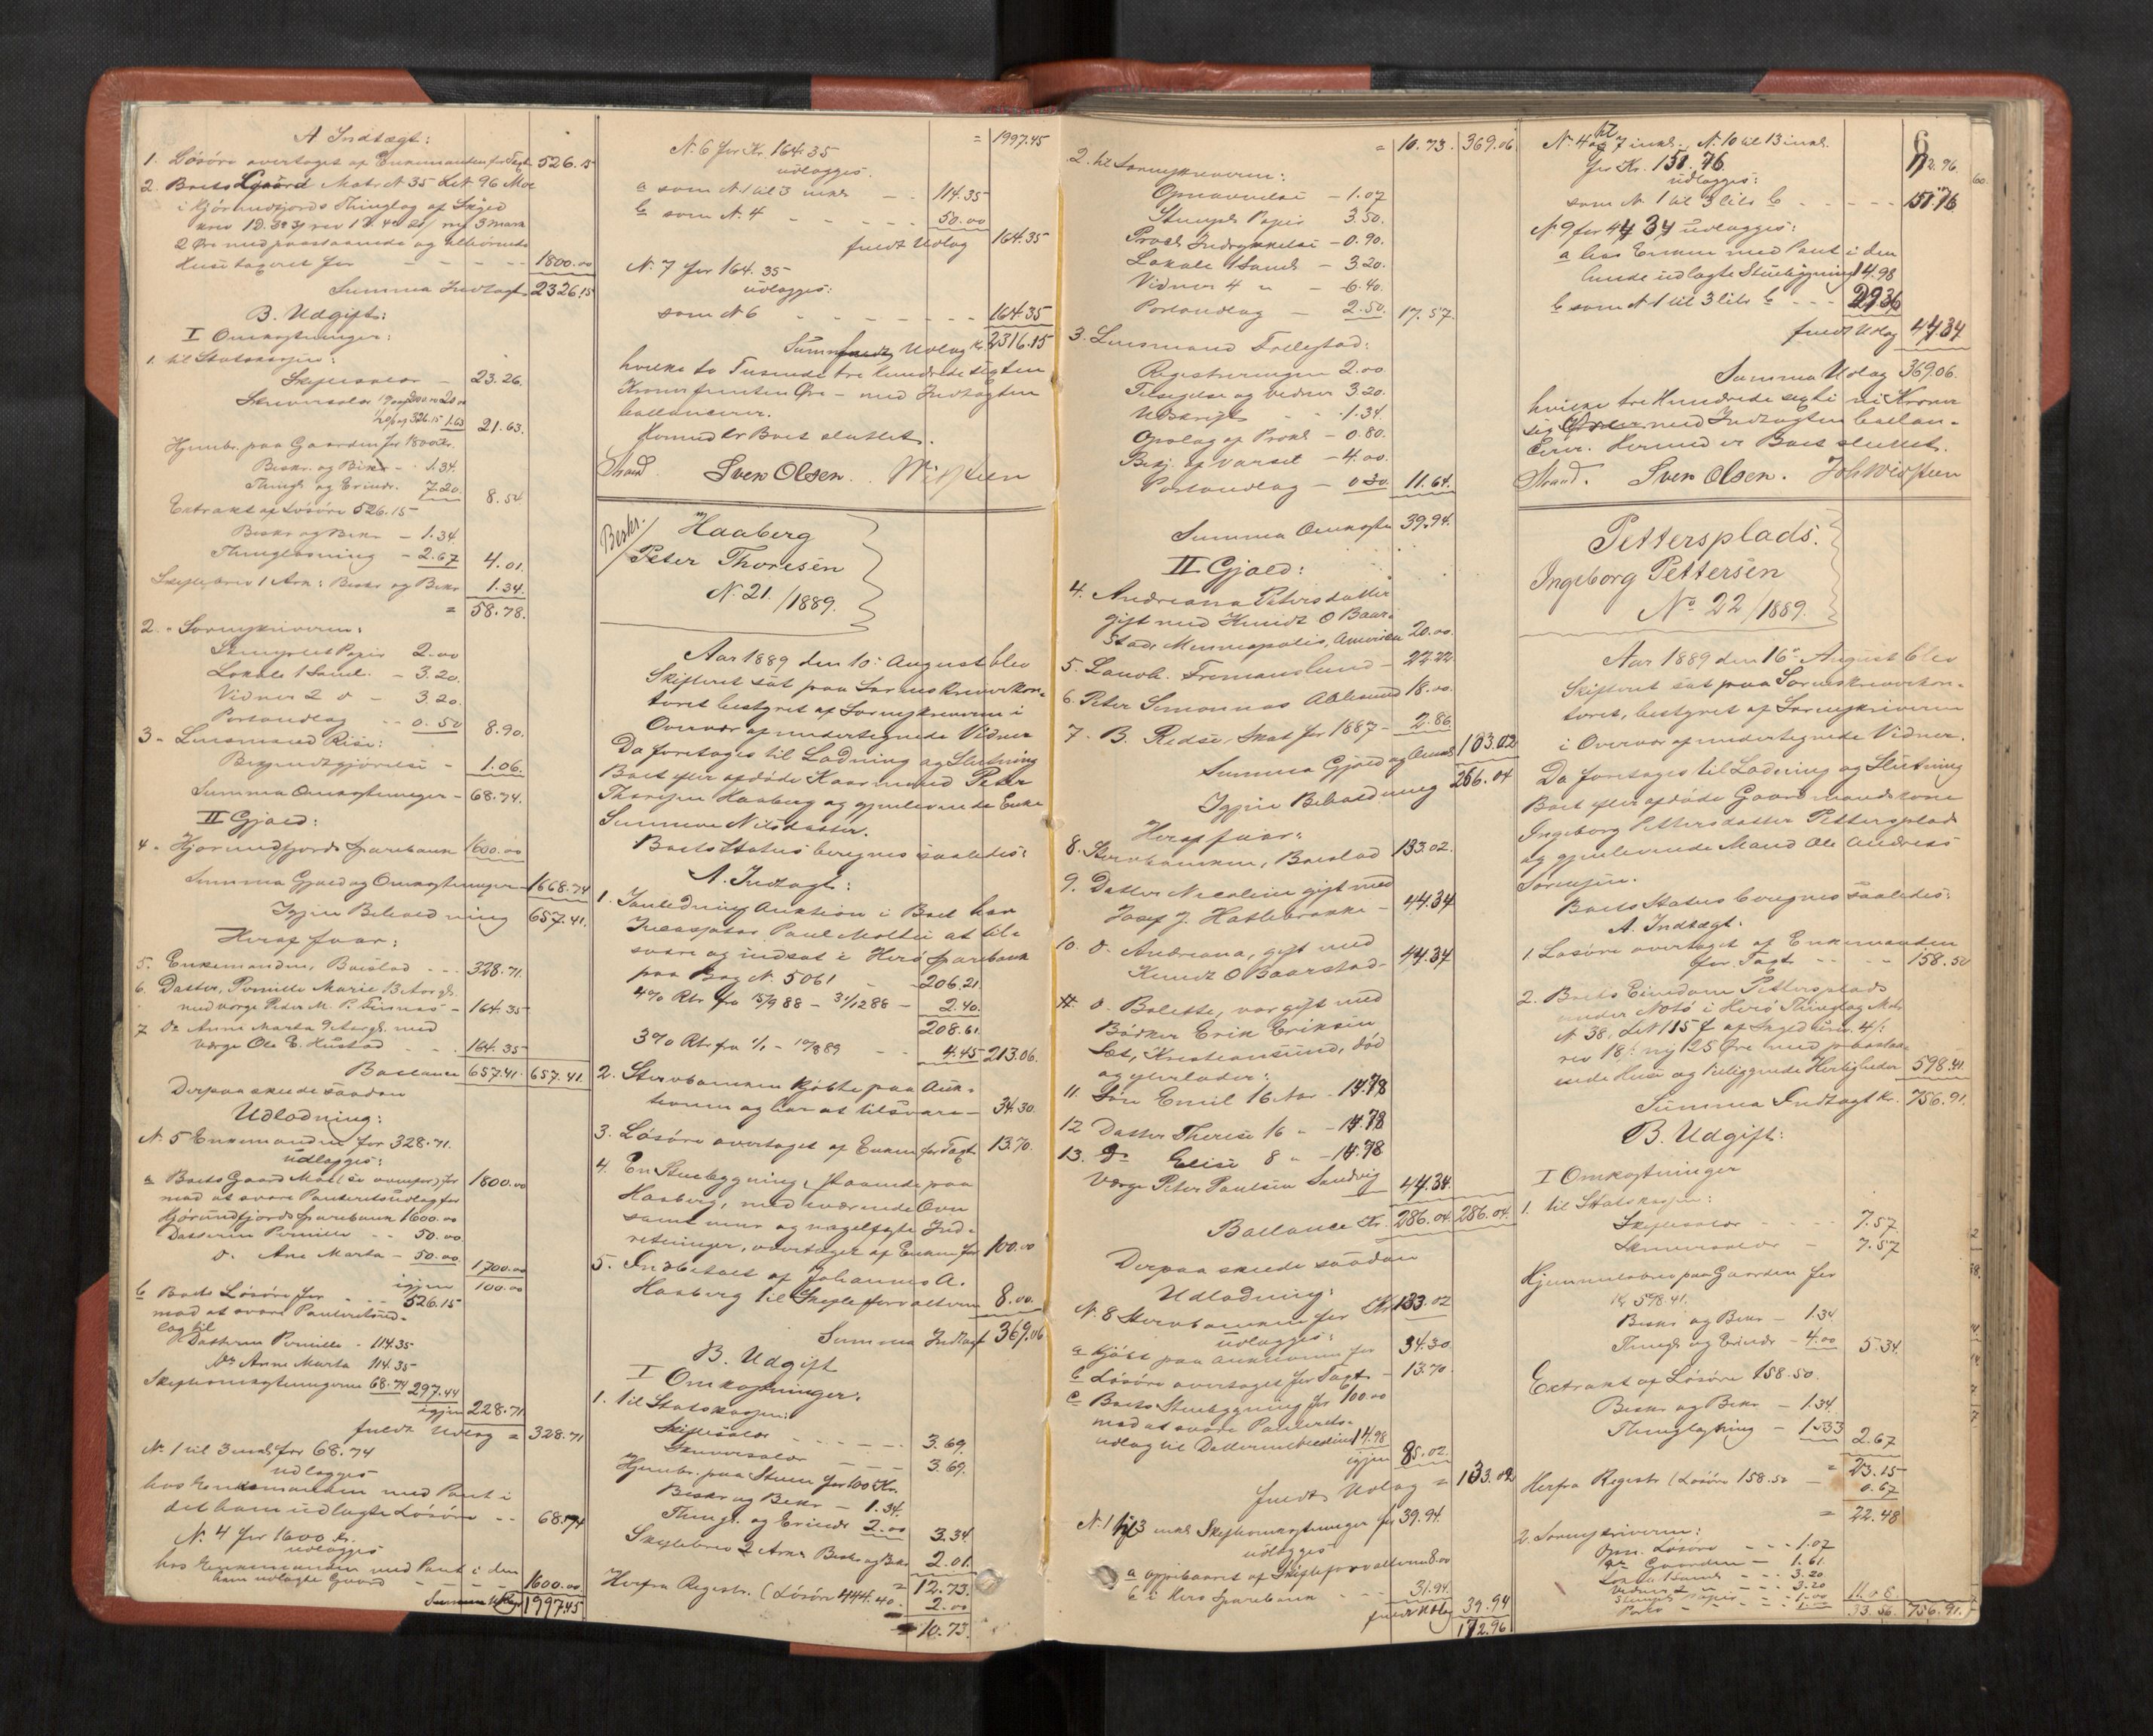 A Indtægt:
1. Løsøre overtaget af Enkemanden for Taxt 526.15
2. Boets Gaard Matr N 35 LN 96 Moe
i Hjørundfjords Thinglag af Skyld
2 Øre med paastaaende og tilhørende
Huse taxeret for - - - 1800.00
Summa Indtægt 2326.15
B. Udgift:
I Omkostninger:
1. til Statskassen:
Skiftesalær - 23.26.
Skriversalær
21.63.
Hjembr. paa Gaarden for 1800 Kr.
Beskr. og Bekr - 1.34.
Thingl. og Erindr. 7.20. 8.54
Extrakt af Løsøre 526.15
Beskr og Bekr - 1.34.
Thinglæsning - 2.67 4.01.
Skiftebrev 1 Ark: Beskr og Bekr 1.34.
= 58.78.
2. Sorenskriveren:
Stemplet Papir 2.00
Lokale 1 Saml. - 3.20.
Vidner 2 d - 3.20.
Portoudlag - 0.50 8.90.
3. Lensmand Riise:
Bekjendtgjørelse - 1.06.
Summa Omkostninger - 68.74.
II Gjæld:
4. Hjørundfjords Sparebank 1600.00
Summa Gjæld og Omkostninger 1668.74
Igjen Behold ning 657.41.
Heraf faar:
5. Enkemanden, Boeslod - - - 328.71.
6. Datter, Pernille Marie 13 Aar gl.
med værge Peter M. P. Finnes - 164.35
7 Do Anne Marta 9 Aar gl. med
Værge Ole E. Hustad - - 164.35
Ballance 657.41. 657.41.
Derpaa skeede saadan
Udlodning:
N. 5 Enkemanden for 328.71.
udlægges:
a Boets Gaard Moe (se ovenfor) for 1800.00
mod at svare Panteretsudlæg for
Hjørundfjords Sparebank 1600.00
Datteren Pernille - - 50.00.
do. Ane Marta - 50.00 1700.00
igjen 100.00
b Boets Løsøre for - - - 526.15
mod at svare Panteretsud-
læg til
Datteren Pernille - 114.35
Do Anne Marta 114.35
Skifteomkostningerne 68.74 297.44
igjen 228.71
fuldt Udlæg = 328.71
N. 1 til 3 incl for 68.74
udlægges
hos Enkemanden med Pant i
det ham udlagte Løsøre - - 68.74
N. 4 for 1600 Kr.
udlægges
hos Enkemanden med Pant i den
ham udlagte Gaard - - - 1600.00
1997.45

= 1997.45
N. 6 for Kr. 164.35
udlægges.
a som N. 1 til 3 incl - - 114.35
b som N. 4 - - - - 50.00
fuldt Udlæg 164.35
N. 7 for 164.35
udlægges:
som N 6 - - - - 164.35
Summa Udlæg Kr. 2316.15
hvilke to Tusinde tre hundrede sexten
Kroner femten Øre - med Indtægten
ballancerer.
Hermed er Boet sluttet.
Strand. Sven Olsen.
Beskr.
Haaberg
Peter Thoresen
N. 21./1889.
Aar 1889 den 10. August blev
Skifteret sat paa Sorenskriverkon-
toret bestyret af Sorenskriveren i
Overvær af undertegnede Vidner
Da foretoges til Lodning og Slutning
Boet efter afdøde Kaarmand Peter
Thoresen Haaberg og gjenlevende Enke
Nilsdatter.
Boets Status beregnes saaledes:
A. Indtægt:
1. I anledning Auktion i Boet har
Incassator Paul Moltu at til-
svare og indsat i Herø Sparebank
paa Bog N. 5061 - 206.21.
4% Rtr fra 15/9 88 - 31/12 88 - 2.40.
208.61.
3% Rtr fra 1/1 - 10/8 89 - - 4.45 213.06.
2. Stervboenken kjøbte paa Auk-
tionen og har at tilsvare - 34.30.
3. Løsøre overtaget af Enken for Taxt 13.70.
4. En Stuebygning staaende paa
Haaberg, med iværende Ovn
samt mur og nagelfaste Ind-
retninger, overtages af Enken for 100.00
5. Indbetalt af Johannes A.
Haaberg til Skifteforvalteren 8.00.
Summa Indtægt 369.06
B. Udgift
I Omkostninger:
1. til Statskassen:
Skiftesalær - - - - 3.69.
Skriversalær - - - 3.69.
Hjembr. paa Stuen for 100 Kr.
Beskr og Bekr - 1.34.
Thingl. og Erindr 2.00 3.34
Skiftebrev 2 Ark Beskr og Bekr 2.01.
= 12.73.
Herfra Registr. (Løsøre 444.40. 2.00
10.73.

= 10.73. 369.06.
2. til Sorenskriveren:
Opnævnelse - 1.07
Stemplet Papir 3.50.
Procl. Indrykkelse - 0.90.
Lokale 1 Saml. - 3.20.
Vidner 4 " - 6.40.
Portoudlag - 2.50. 17.57.
3. Lensmand
Registreringen 2.00
Tilsigelse og Vidner 3.20.
Udskrift - - 1.34.
Opslag af Procl - 0.80.
Bekj. af Varsel - 4.00.
Portoudlag - 0.30. 11.64.
Summa Omkostn 39.94.
II Gjæld:
4. Andreana Petersdatter
gift med Knudt O Baar-
stad, Minneapolis, Amerika 20.00.
5. Landh. - 22.22
6. Peter Simonnes 18.00.
7. B. Redse, Skat for 1887 - 2.86.
Summa Gjæld og Omk 103.02
Igjen Beholdning 266.04
Heraf faar:
8. Stervboenken, Boeslod 133.02.
9. Datter Nicoline gift med
Josef J. Hatlebrække - 44.34
10. d. Andreana, gift med
Knudt O Baarstad - 44.34
d. Bolette, var gift med
Bødker Erik Eriksen
Sæt, Kristiansund, død
og efterlader:
11. Søn Emil 16 Aar - 14.78
12 Datter Therese 16 " - 14.78
13. Do Elise 8 " - 14.78
Værge Peter Paulsen Sandvig 44.34.
Ballance Kr. 286.04. 286.04.
Derpaa skeede saadan
Udlodning:
N. 8 Stervboenken for Kr 133.02
udlægges:
a Kjøbt paa auktionen for 34.30
b Løsøre overtaget for Taxt - 13.70.
c Boets Stuebygning for 100.00
mod at svare Panterets-
udlæg til 14.98
igjen 85.02.
fuldt Udlæg = 133.02
N. 1 til 3 incl Skifteomkostninger for 39.94.
udlægges
a oppebaaret af Skifteforvalteren 8.00
b i Herø Sparebank - - 31.94.
fuldt Udlæg 39.94
172.96

6
N. 4 til 7 inkl., N. 10 til 13 inkl. 172.96
for Kr. 151.76
udlægges:
som N 1 til 3 lits b - - - 151.76
N 9 for 44 34 udlægges:
a hos Enken med Pant i den
hende udlagte Stuebygning 14.98
b som N 1 til 3 lits b - - - 29.36
fuldt Udlæg 44.34
Summa Udlæg 369.06.
hvilke tre Hundrede sexti ni Kroner
sex Øre med Indtægten ballan-
cerer. Hermed er Boet sluttet.
Strand. Sven Olsen.
Pettersplads.
Ingeborg Pettersen
No 22/1889.
Aar 1889 den 16. August blev
Skifteret sat paa Sorenskriverkon-
toret, bestyret af Sorenskriveren
i Overvær af undertegnede Vidner.
Da foretoges til Lodning og Slutning
Boet efter afdøde Gaardmandskone
Ingeborg Pettersdatter Pettersplads
og gjenlevende Mand Ole Andreas
Sørensen.
Boets Status beregnes saaledes:
A. Indtægt.
1 Løsøre overtaget af Enkemanden
for Taxt - - - 158.50
2. Boets Eiendom Pettersplads
under Notø i Herø Thinglag Matr
N 38. LN 115 f af Skyld
rev 18/: ny 125 Øre med paastaa-
ende Huse og tilliggende Herligheder 598.41.
Summa Indtægt Kr. 756.91.
B. Udgift:
I Omkostninger
1. til Statskassen:
Skiftesalær - - - 7.57.
Skriversalær - 7.57
Hjemmelsbrev paa Gaarden for
Kr. 598.41.
Beskr og Bekr - 1.34
Thingl og Erindr - 4.00 5.34.
Extrakt af Løsøre 158.50.
Beskr og Bekr - 1.34.
Thinglæsning - 1.33 2.67
= 23.15
Herfra Registr (Løsøre 158.50 - 0.67
= 22.48
2. Sorenskriveren:
Opn. Løsøre - - - 1.07
Do Gaarden - 1.61.
Lokale 1 Saml - - 3.20
Vidner 2 " - - 3.20
Stemplet Papir - - 1.00
Porto - - - - 1.00
33.56. 756.91.